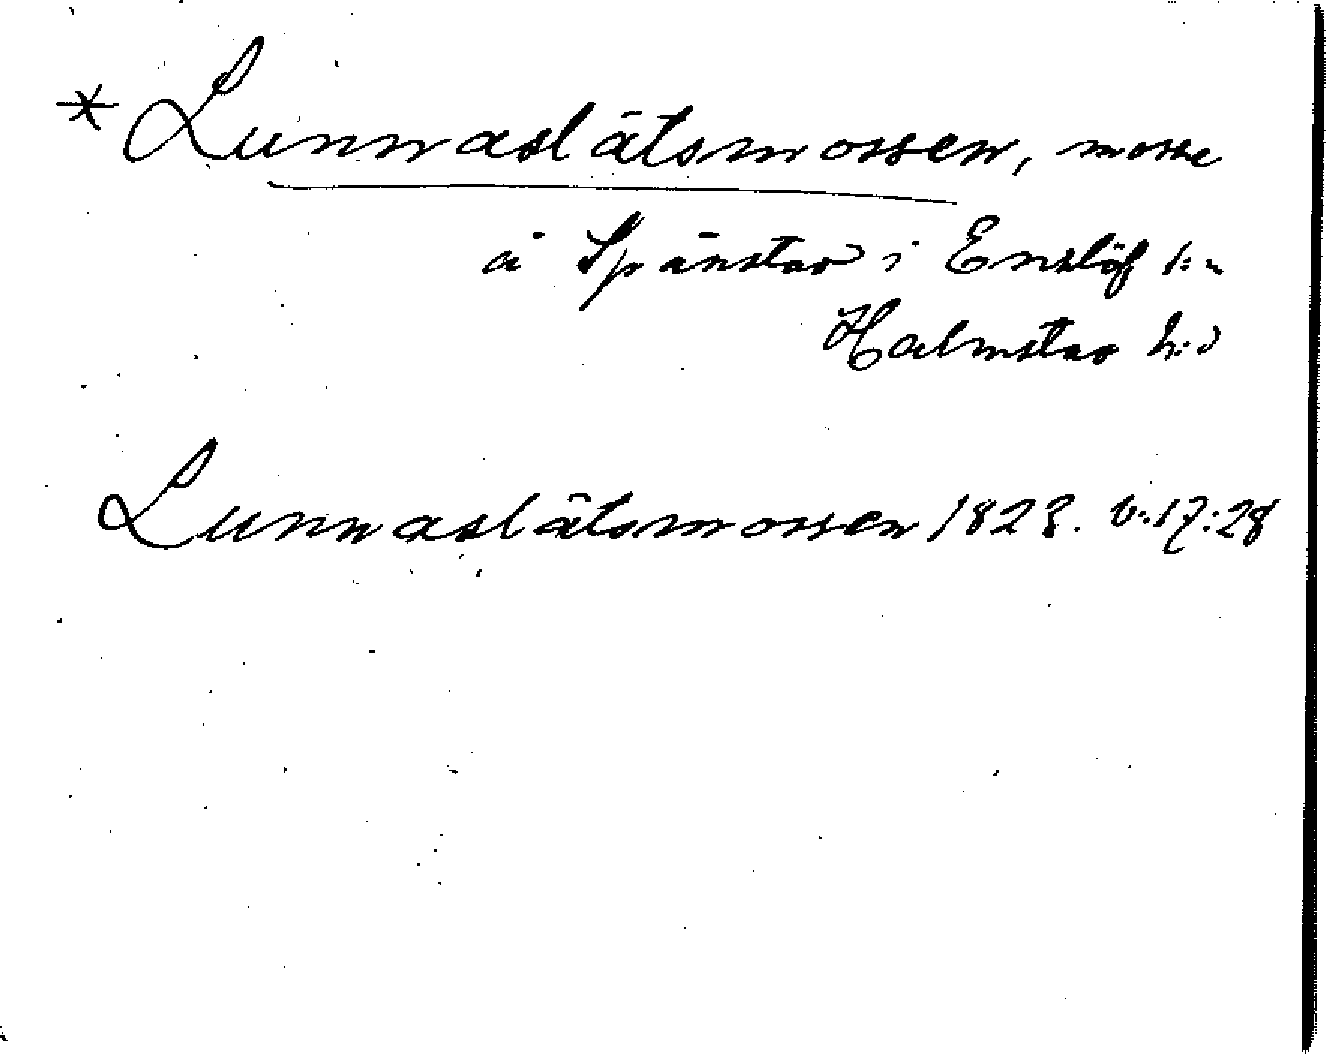 * Lunnaslätsmossen, mosse
å Spänstad i Enslöf s:n
Halmstad h:d
Lunnaslätsmossen 1828. v:17:28